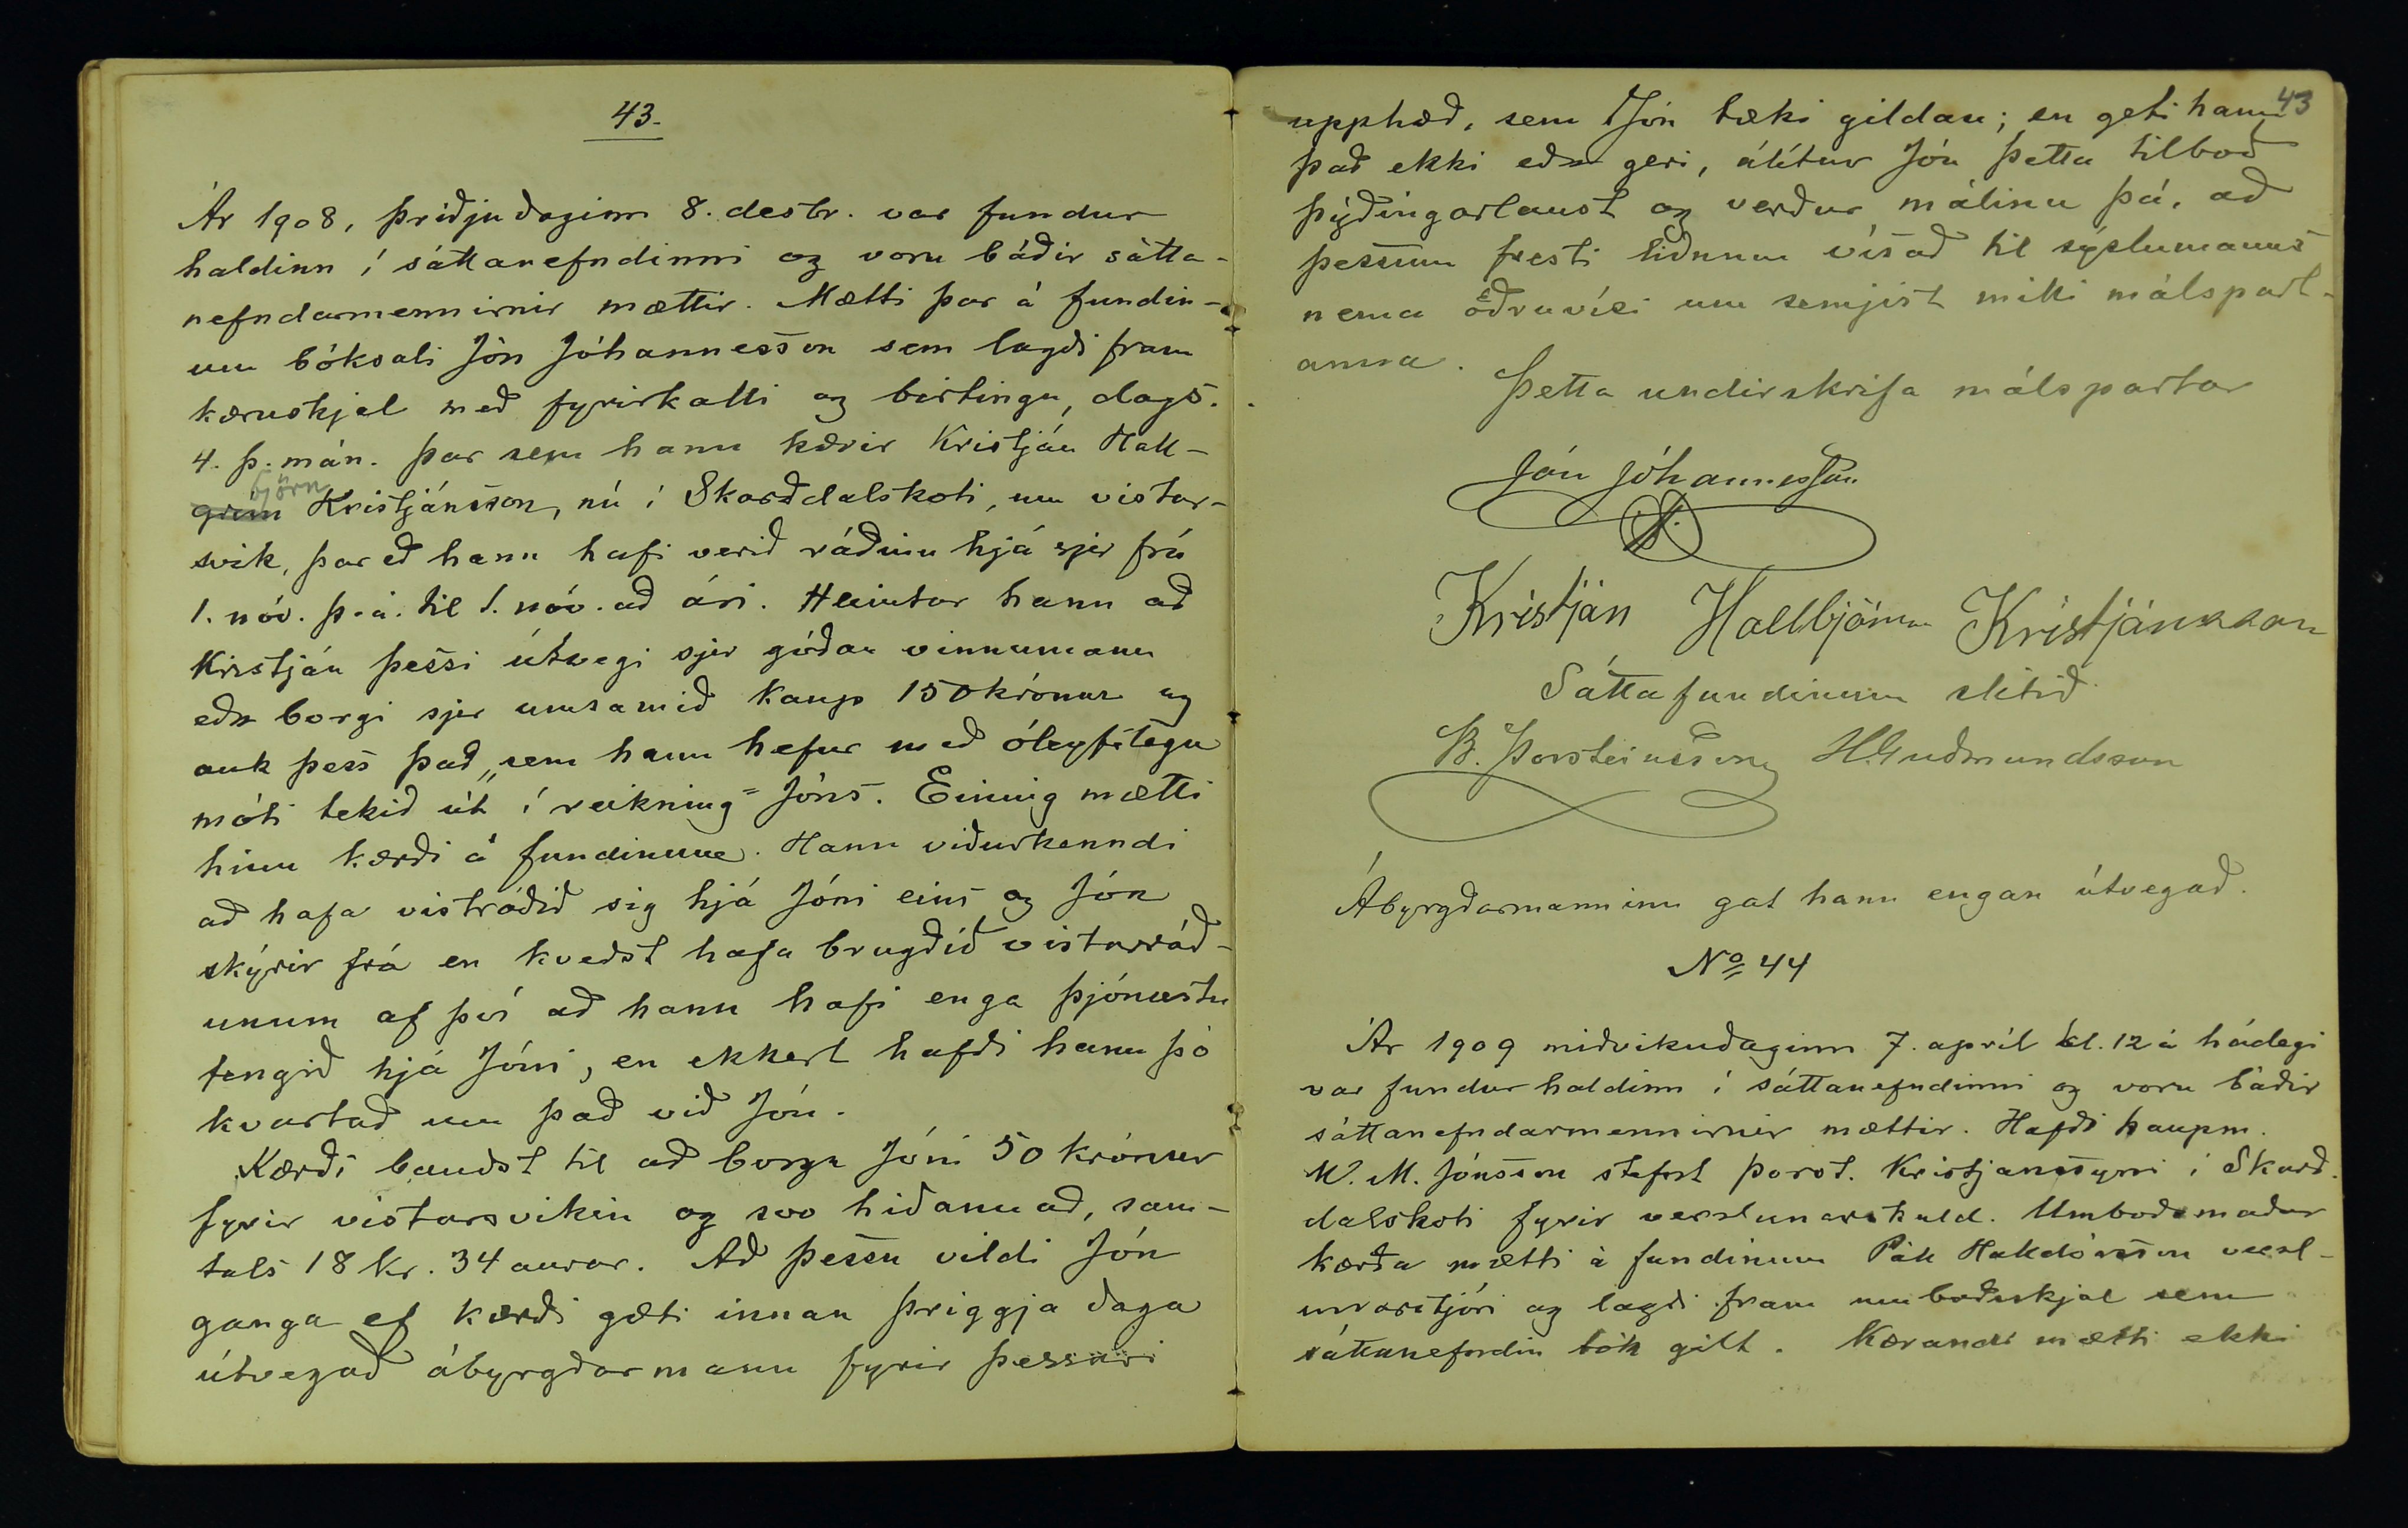 43.
Ár 1908, þriðjudaginn 8. desbr. var fundur
haldinn í sáttanefndinni og voru báðir sátta-
nefndarmennirnir mættir. Mætti þar á fundin-
um bóksali Jón Jóhannesson sem lagði fram
kæruskjal með fyrirkalli og birtingu, dags.
4. þ. mán. þar sem hann kærir Kristján Hall-
björn
grím Kristjánsson, nú í Skarðdalskoti, um vistar-
svik, þar eð hann hafi verið ráðinn hjá sjer frá
1. nóv. þ. á. til 1. nóv. að ári. Heimtar hann að
Kristján þessi útvegi sjer góðan vinnumann
eða borgi sjer umsamið kaup 150 krónur og
auk þess það „sem hann hefur með óleyfilegu
móti tekið út í reikning" Jóns. Einnig mætti
hinn kærði á fundinum. Hann viðurkenndi
að hafa vistráðið sig hjá Jóni eins og Jón
skýrir frá en kveðst hafa brugðið vistarráð-
unum af því að hann hafi enga þjónustu
fengið hjá Jóni, en ekkert hafði hann þó
kvartað um það við Jón.
Kærði bauðst til að borga Jóni 50 krónur
fyrir vistarsvikin og svo hið annað, sam-
tals 18 kr. 34 aurar. Að þessu vildi Jón
ganga ef kærði gæti innan þriggja daga
útvegað ábyrgðarmann fyrir þessari
43
upphæð, sem Jón tæki gildan; en geti hann
það ekki eða geri, álítur Jón þetta tilboð
þýðingarlaust og verður málinu þá, að
þessum fresti liðnum vísað til sýslumanns
nema öðruvísi um semjist milli málspart-
anna.
Þetta undirskrifa málspartar
Jón Jóhannesson
Kristján Hallbjörn Kristjánsson
Sáttafundinum slitið
B. Þorsteinsson H. Guðmundsson
Ábyrgðarmanninn gat hann engan útvegað.
No 44
Ár 1909 miðvikudaginn 7. apríl kl. 12 á hádegi
var fundur haldinn í sáttanefndinni og voru báðir
sáttanefndarmennirnir mættir. Hafði kaupm.
M. Jónsson stefnt Þorst. Kristjánssyni í Skarð-
dalskoti fyrir verslunarskuld. Umboðsmaður
kærða mætti á fundinum Páll Halldórsson versl-
unarstjóri og lagði fram umboðsskjal sem
sáttanefndin tók gilt. Kærandi mætti ekki